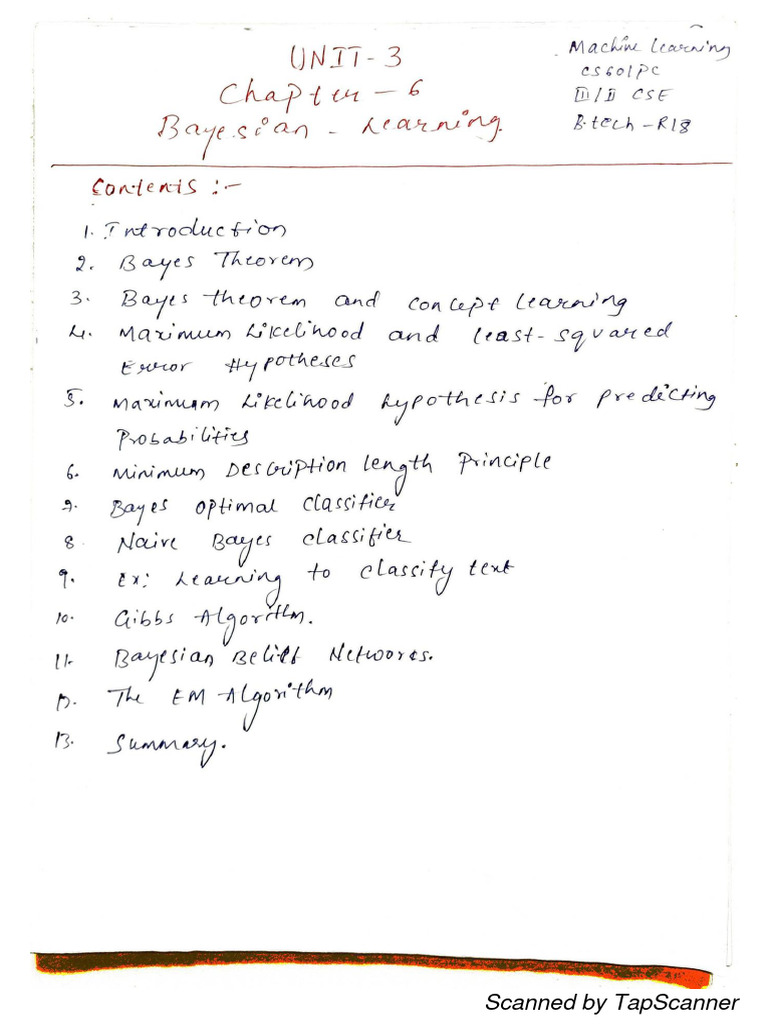 UNIT-3
Chapter - 6
Bayesian - Learning.
Machine Learning
CS601PC
III/II CSE
B.tech-R18
Contents :-
1. Introduction
2. Bayes Theorem
3. Bayes theorem and concept learning
4. Maximum Likelihood and least-squared
Error Hypotheses
5. Maximum Likelihood hypothesis for predicting
Probabilities
6. Minimum Description length Principle
7. Bayes optimal classifier
8. Naive Bayes classifier
9. Ex: Learning to classify text
10. Gibbs Algorithm.
11. Bayesian Belief Networks.
12. The EM Algorithm
13. Summary.
Scanned by TapScanner